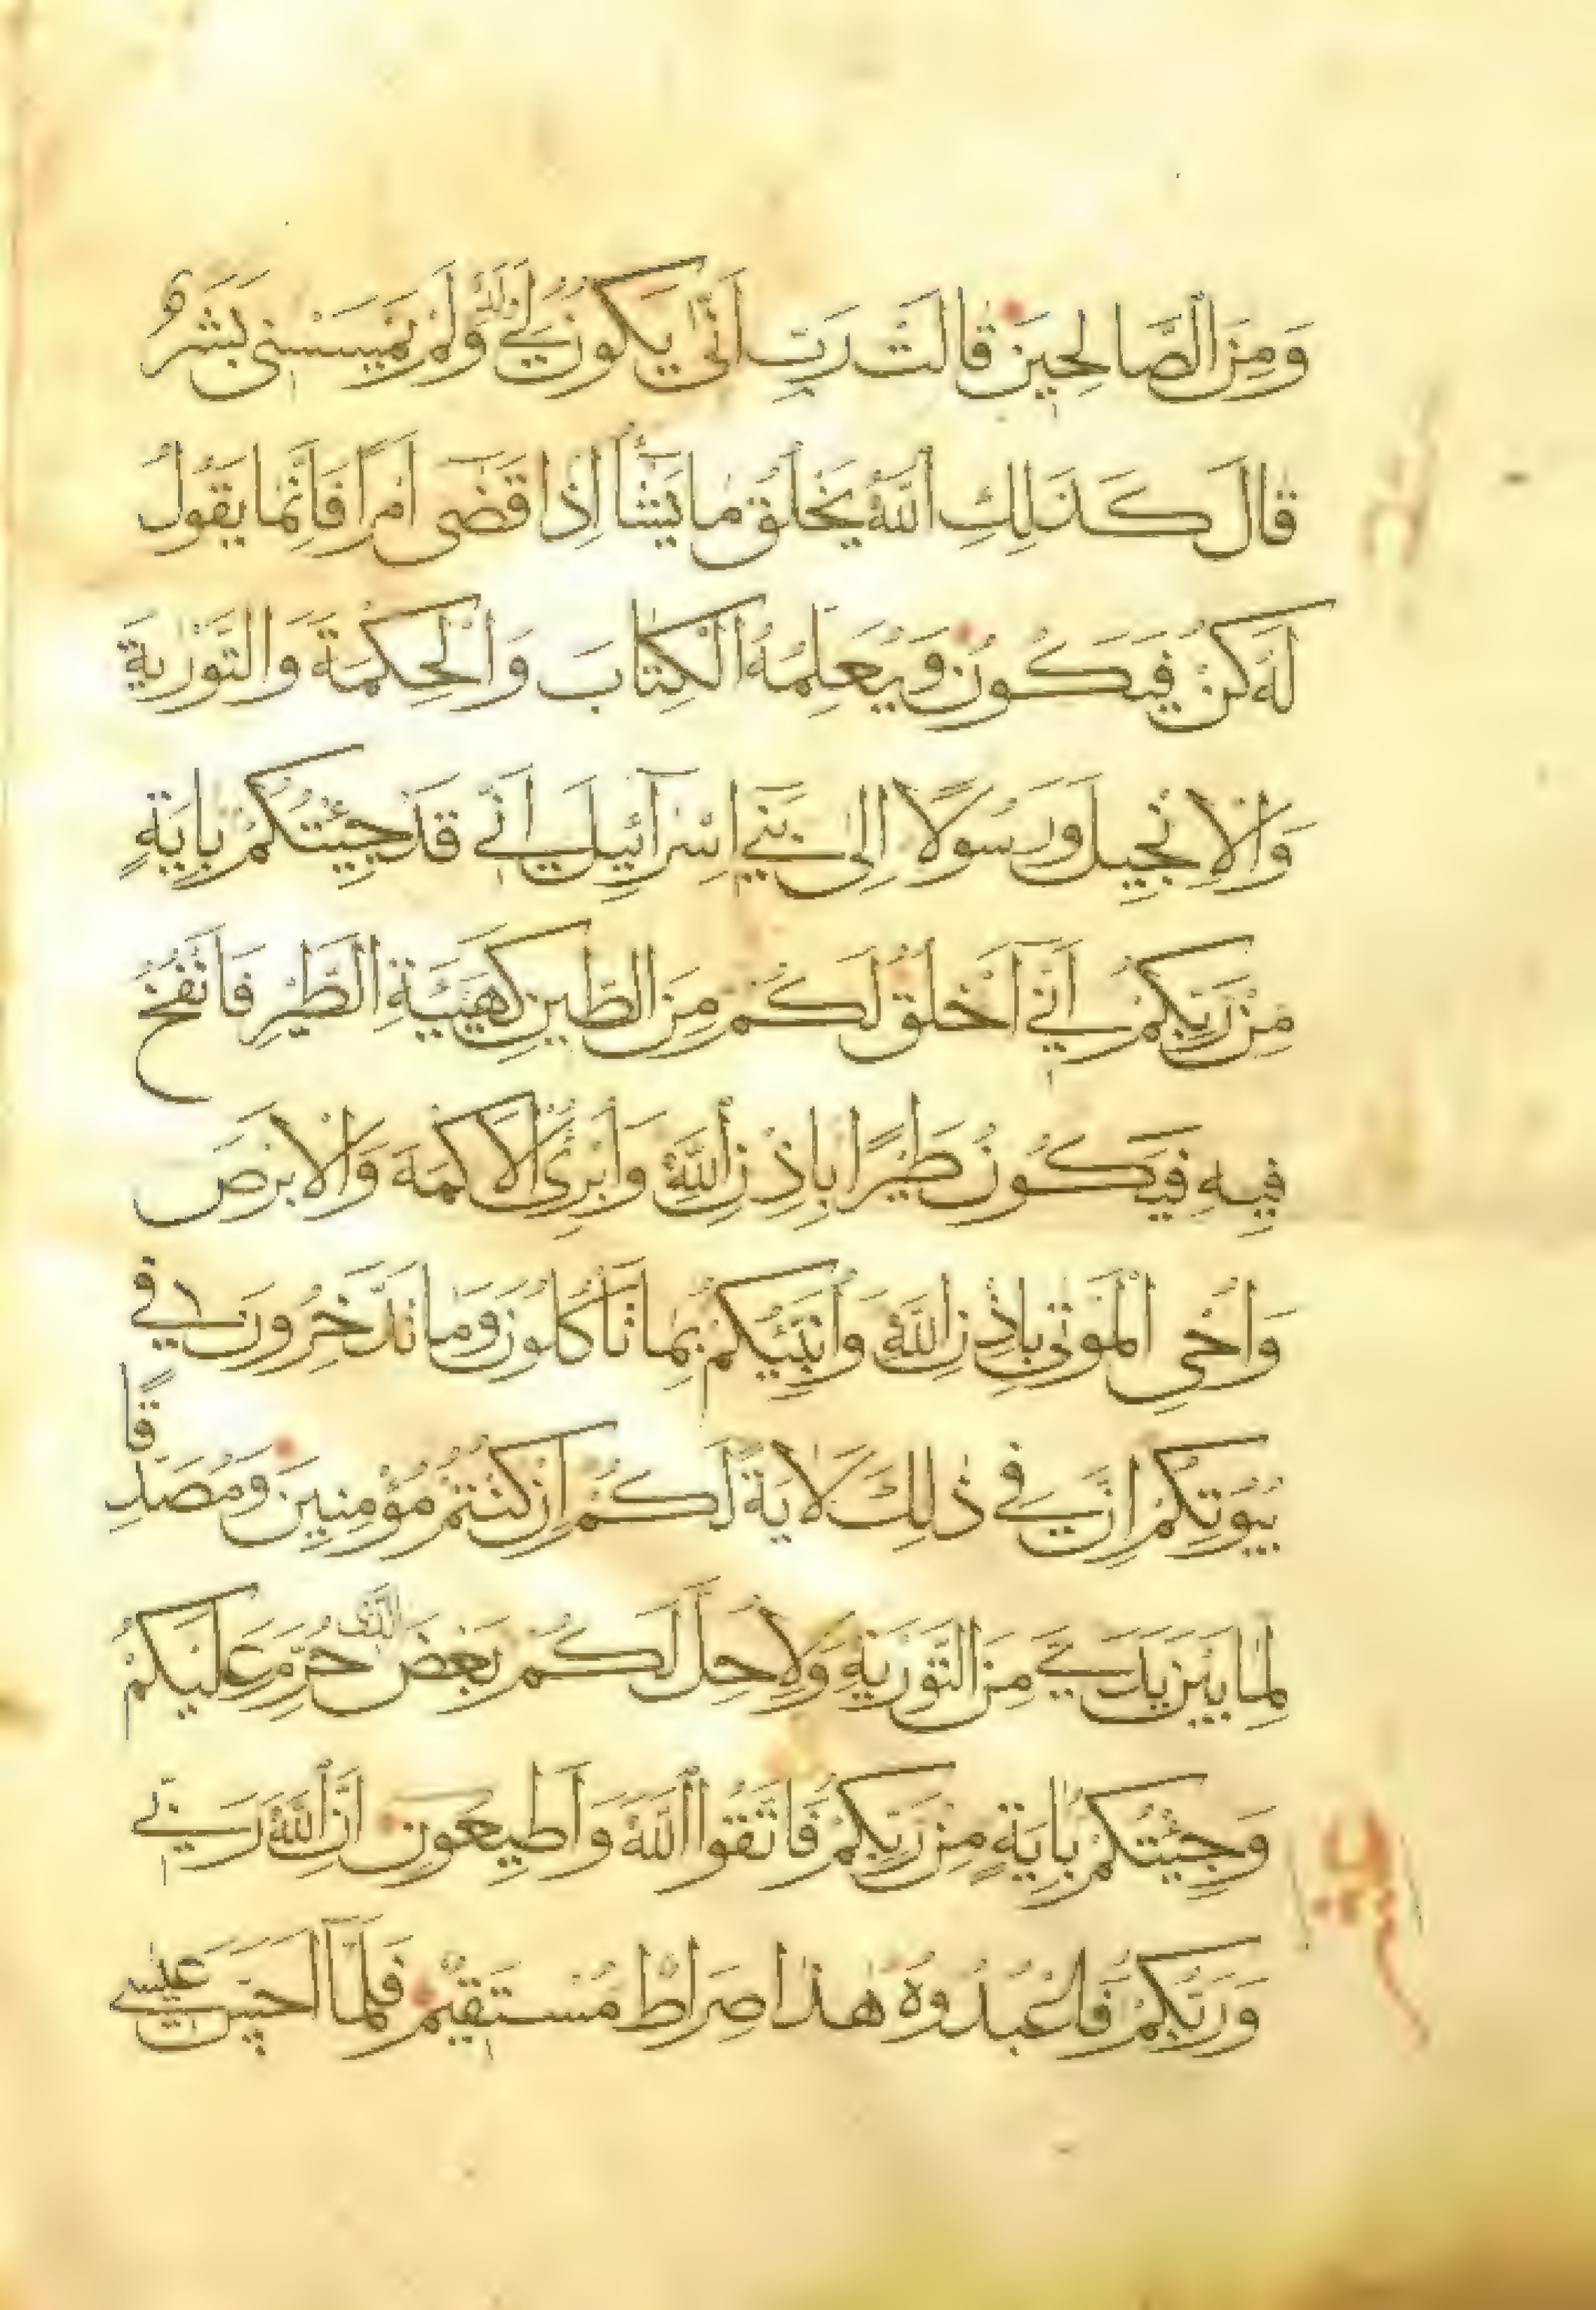 وَمِنَ الصَّالِحِينَ قَالَتْ رَبِّ اَنّٰى يَكُونُ لِي وَلَدٌ وَلَمْ يَمْسَسْنِي بَشَرٌ
قَالَ كَذَلِكِ اللّٰهُ يَخْلُقُ مَا يَشَٓاءُ اِذَا قَضٰٓى اَمْرًا فَاِنَّمَا يَقُولُ
لَهُ كُنْ فَيَكُونُ وَيُعَلِّمُهُ الْكِتَابَ وَالْحِكْمَةَ وَالتَّوْرٰيةَ
وَالْاِنْجِيلَ وَرَسُولًا اِلٰى بَنِٓي اِسْرَآئِيلَ اَنِّي قَدْ جِئْتُكُمْ بِاٰيَةٍ
مِنْ رَبِّكُمْ اَنِّٓي اَخْلُقُ لَكُمْ مِنَ الطِّينِ كَهَيْئَةِ الطَّيْرِ فَاَنْفُخُ
فِيهِ فَيَكُونُ طَيْرًا بِاِذْنِ اللّٰهِ وَاُبْرِئُ الْاَكْمَهَ وَالْاَبْرَصَ
وَاُحْيِ الْمَوْتٰى بِاِذْنِ اللّٰهِ وَاُنَبِّئُكُمْ بِمَا تَاْكُلُونَ وَمَا تَدَّخِرُونَ فِي
بُيُوتِكُمْ اِنَّ فِي ذٰلِكَ لَاٰيَةً لَكُمْ اِنْ كُنْتُمْ مُؤْمِنِينَ وَمُصَدِّقًا
لِمَا بَيْنَ يَدَيَّ مِنَ التَّوْرٰيةِ وَلِاُحِلَّ لَكُمْ بَعْضَ الَّذِي حُرِّمَ عَلَيْكُمْ
وَجِئْتُكُمْ بِاٰيَةٍ مِنْ رَبِّكُمْ فَاتَّقُوا اللّٰهَ وَاَطِيعُونِ اِنَّ اللّٰهَ رَبِّي
وَرَبُّكُمْ فَاعْبُدُوهُ هٰذَا صِرَاطٌ مُسْتَقِيمٌ فَلَمَّٓا اَحَسَّ عِيسٰى